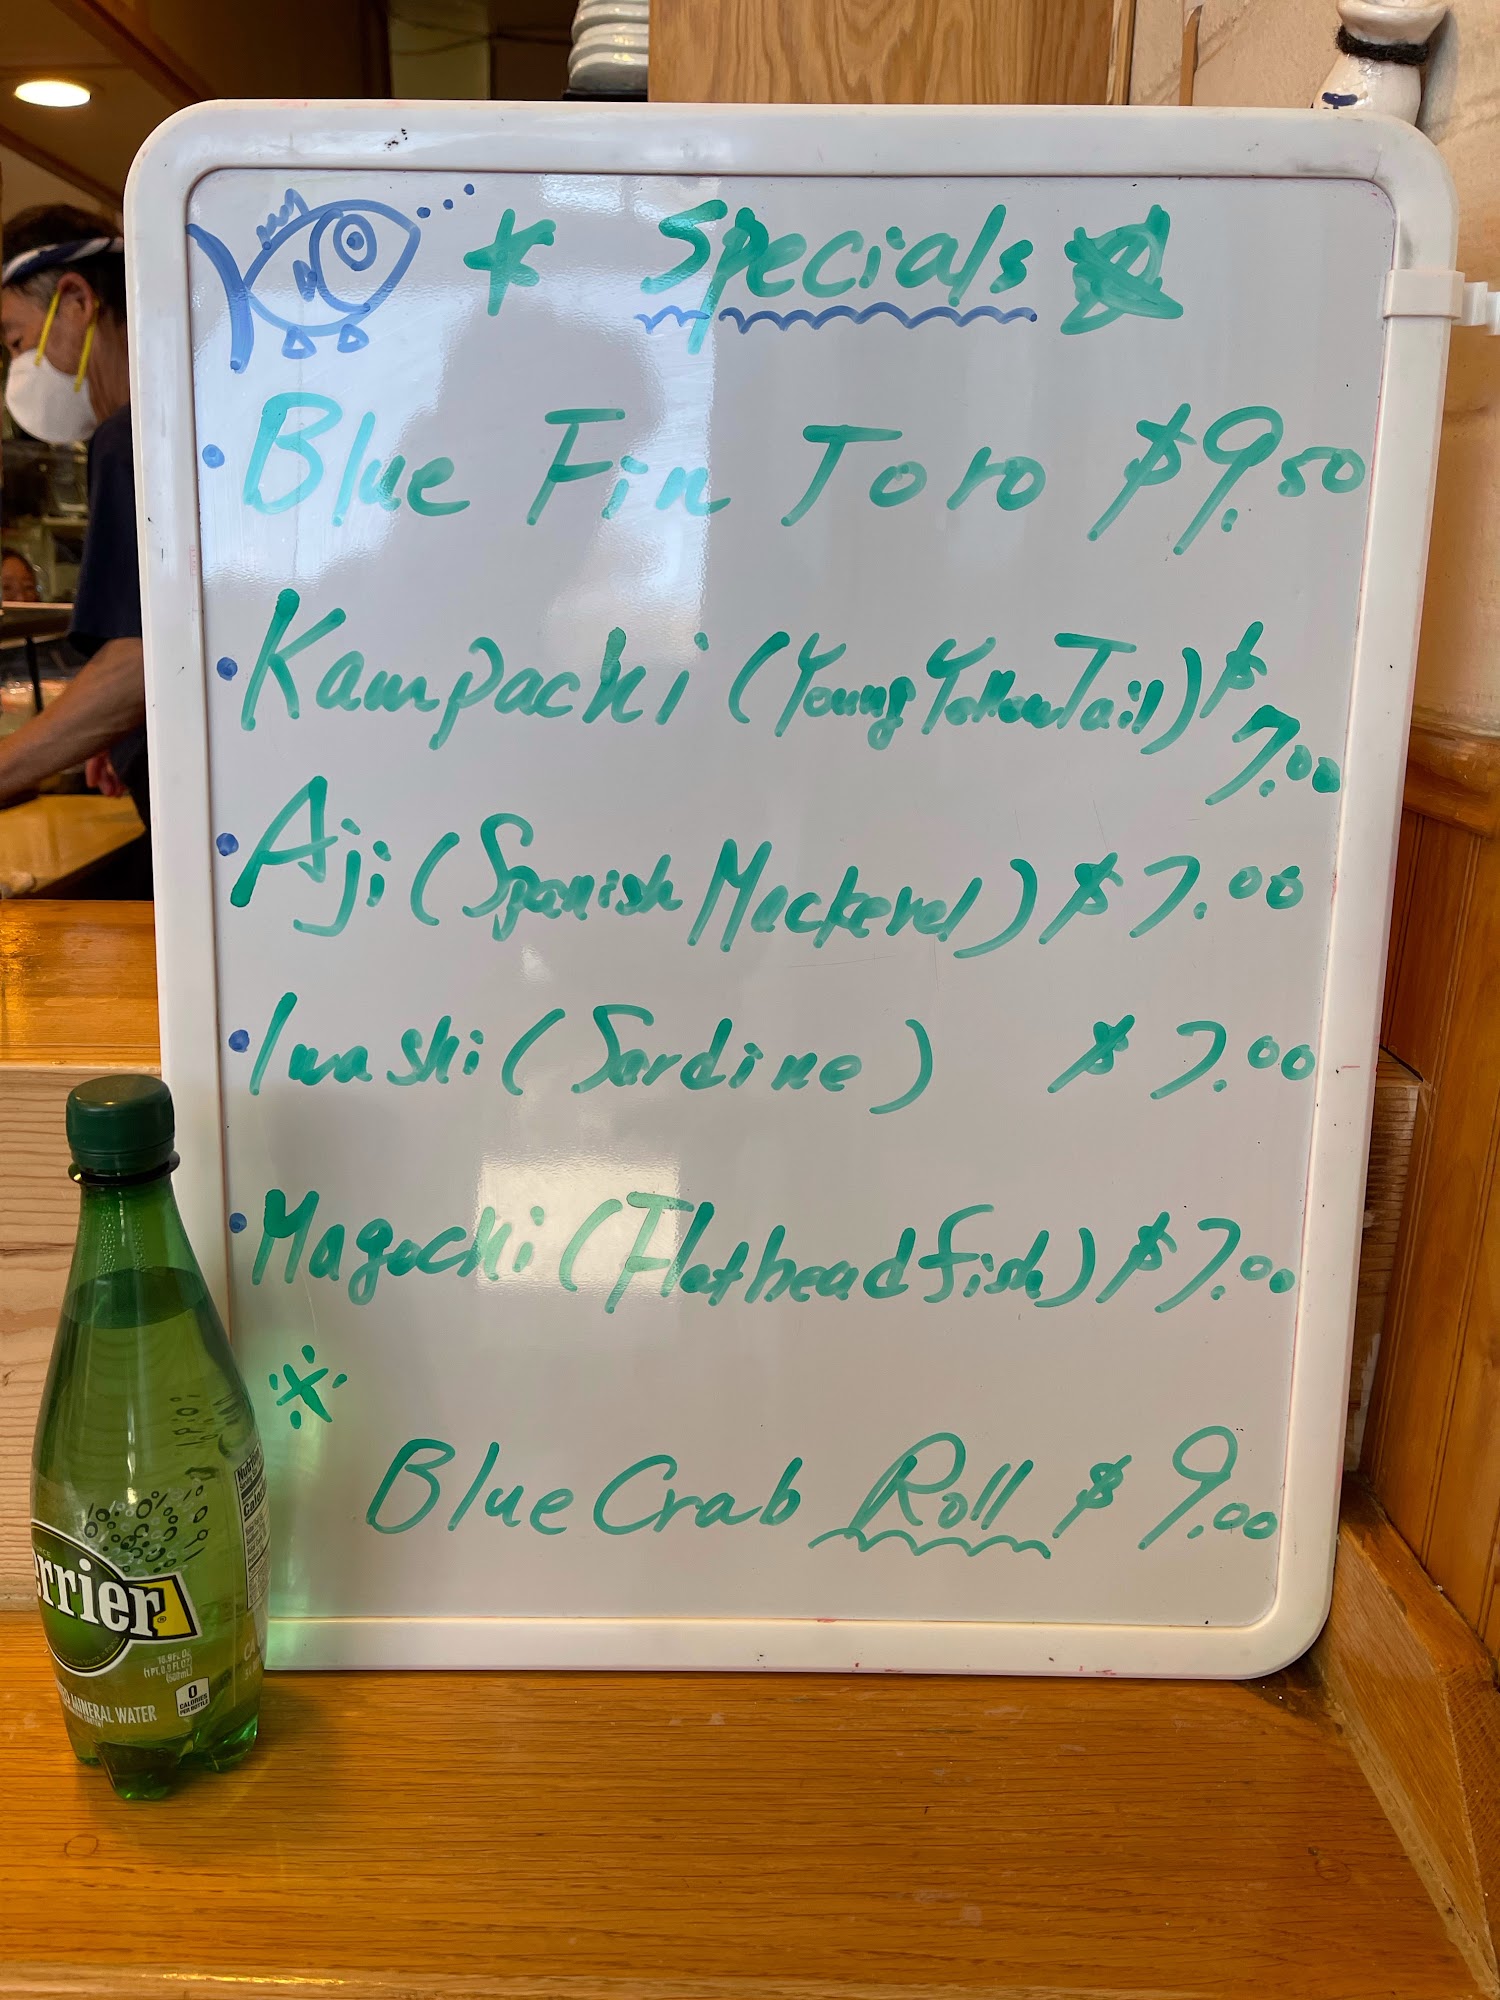 * Specials
• Blue Fin Toro $9.50
• Kampachi (Young YellowTail) $7.00
• Aji (Spanish Mackerel) $7.00
• Iwashi (Sardine) $7.00
• Magochi (Flathead fish) $7.00
※
Blue Crab Roll $9.00
errier
16.9 FL OZ
(1 PT, 0.9 FL OZ)
(500mL)
MINERAL WATER
0
CALORIES
PER BOTTLE